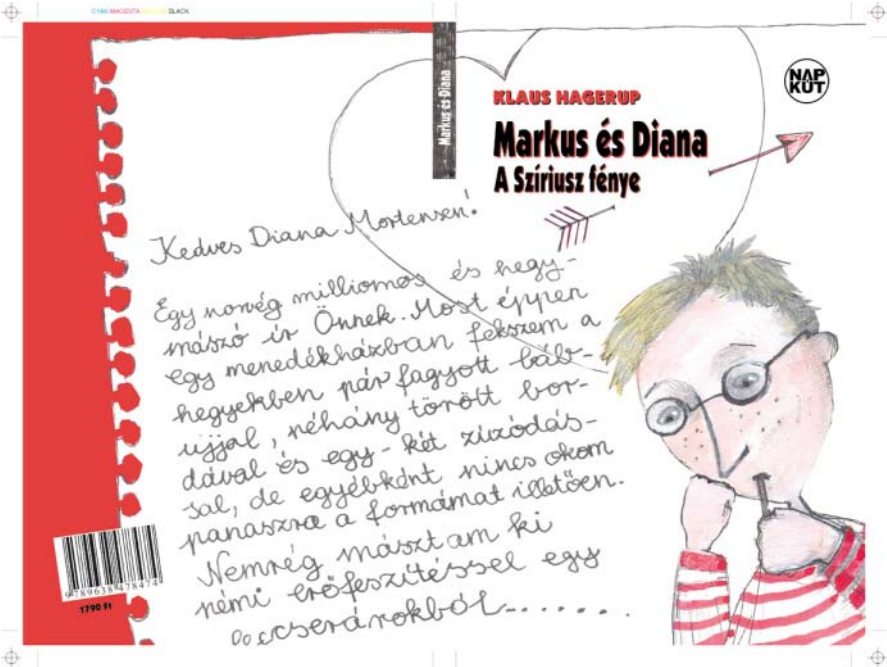 CYAN MAGENTA YELLOW BLACK
Markus és Diana
NAP
KÚT
KLAUS HAGERUP
Markus és Diana
A Szíriusz fénye
Kedves Diana Mortensen!
Egy norvég milliomos és hegy-
mászó ír Önnek. Most éppen
egy menedékházban fekszem a
hegyekben pár fagyott láb-
ujjal, néhány törött bor-
dával és egy-két zúzódás-
sal, de egyébként nincs okom
panaszra a formámat illetően.
Nemrég másztam ki
némi erőfeszítéssel egy
9789638478474
1790 Ft